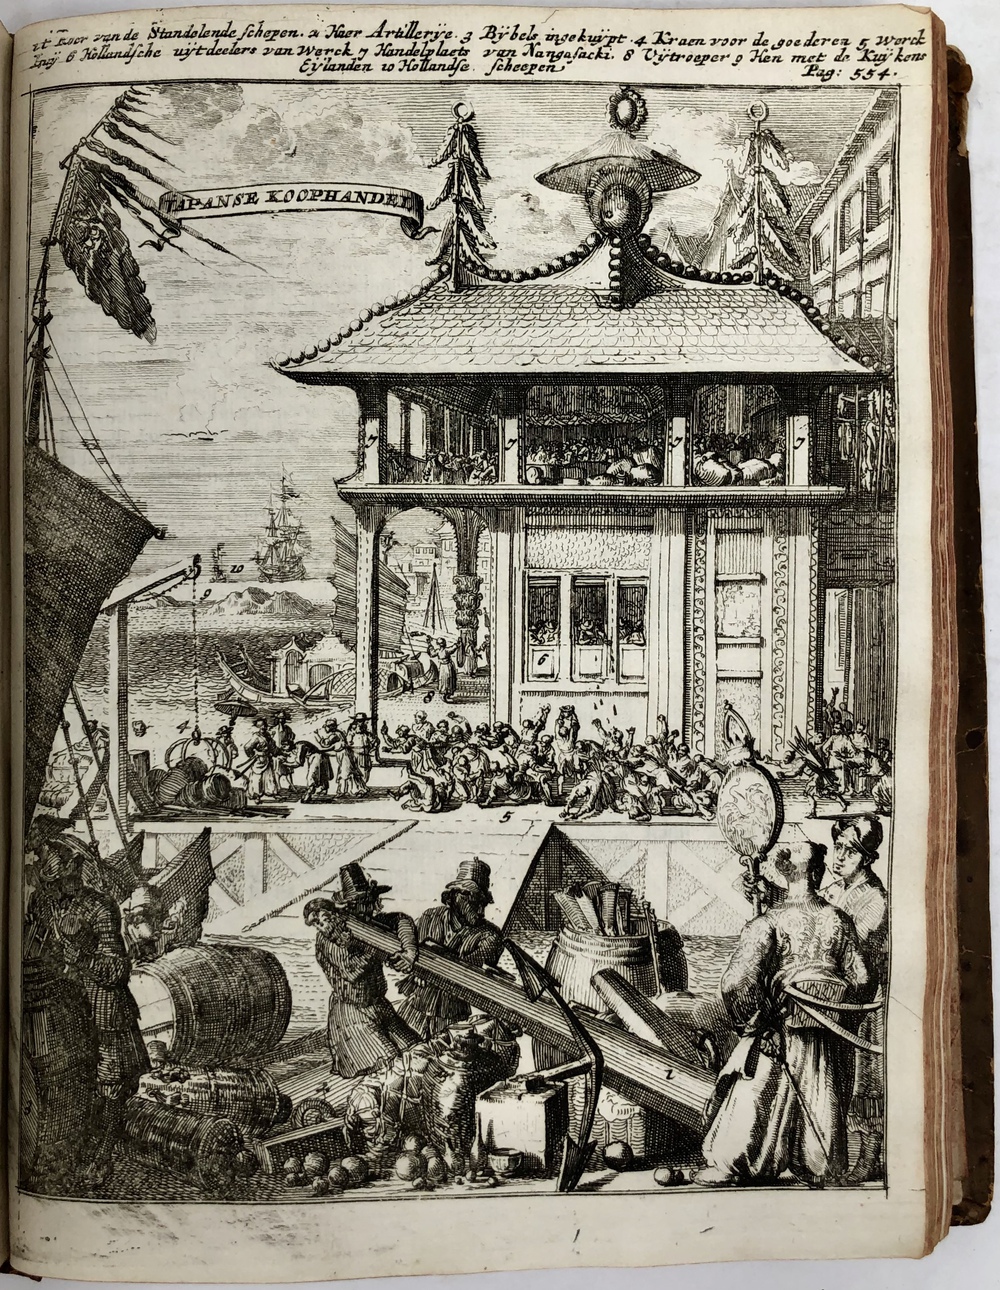 it Roer van de Standolende schepen. 2 Haer Artillerije. 3 Bijbels ingekuijpt. 4 Kraen voor de goederen 5 Werck
luij 6 Hollandsche uijtdeelers van Werck 7 Handelplaets van Nangasacki. 8 Uijtroeper 9 Hen met de Kuijkens
Eijlanden 10 Hollandse scheepen
Pag: 554.
JAPANSE KOOPHANDEL
7 7 7 7
10
9
6
8
4
5
1
2
3